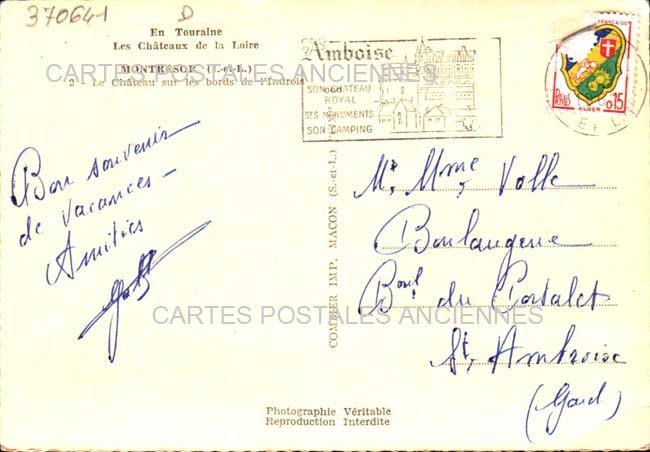 370641
D
En Touraine
Les Châteaux de la Loire
MONTRÉSOR (I.-et-L.)
2 - Le Château sur les bords de l'Indrois
CARTES POSTALES ANCIENNES
Amboise
SON CHATEAU
ROYAL
SES MONUMENTS
SON CAMPING
FRANÇAISE
Postes
ALGER
0,15
Bon souvenir
de vacances -
Amitiés
COMBIER IMP. MACON (S.-et-L.)
Mr Mme Volle
Boulangerie
Boul. du Portalet
St. Ambroise
(Gard)
CARTES POSTALES ANCIENNES
Photographie Véritable
Reproduction Interdite